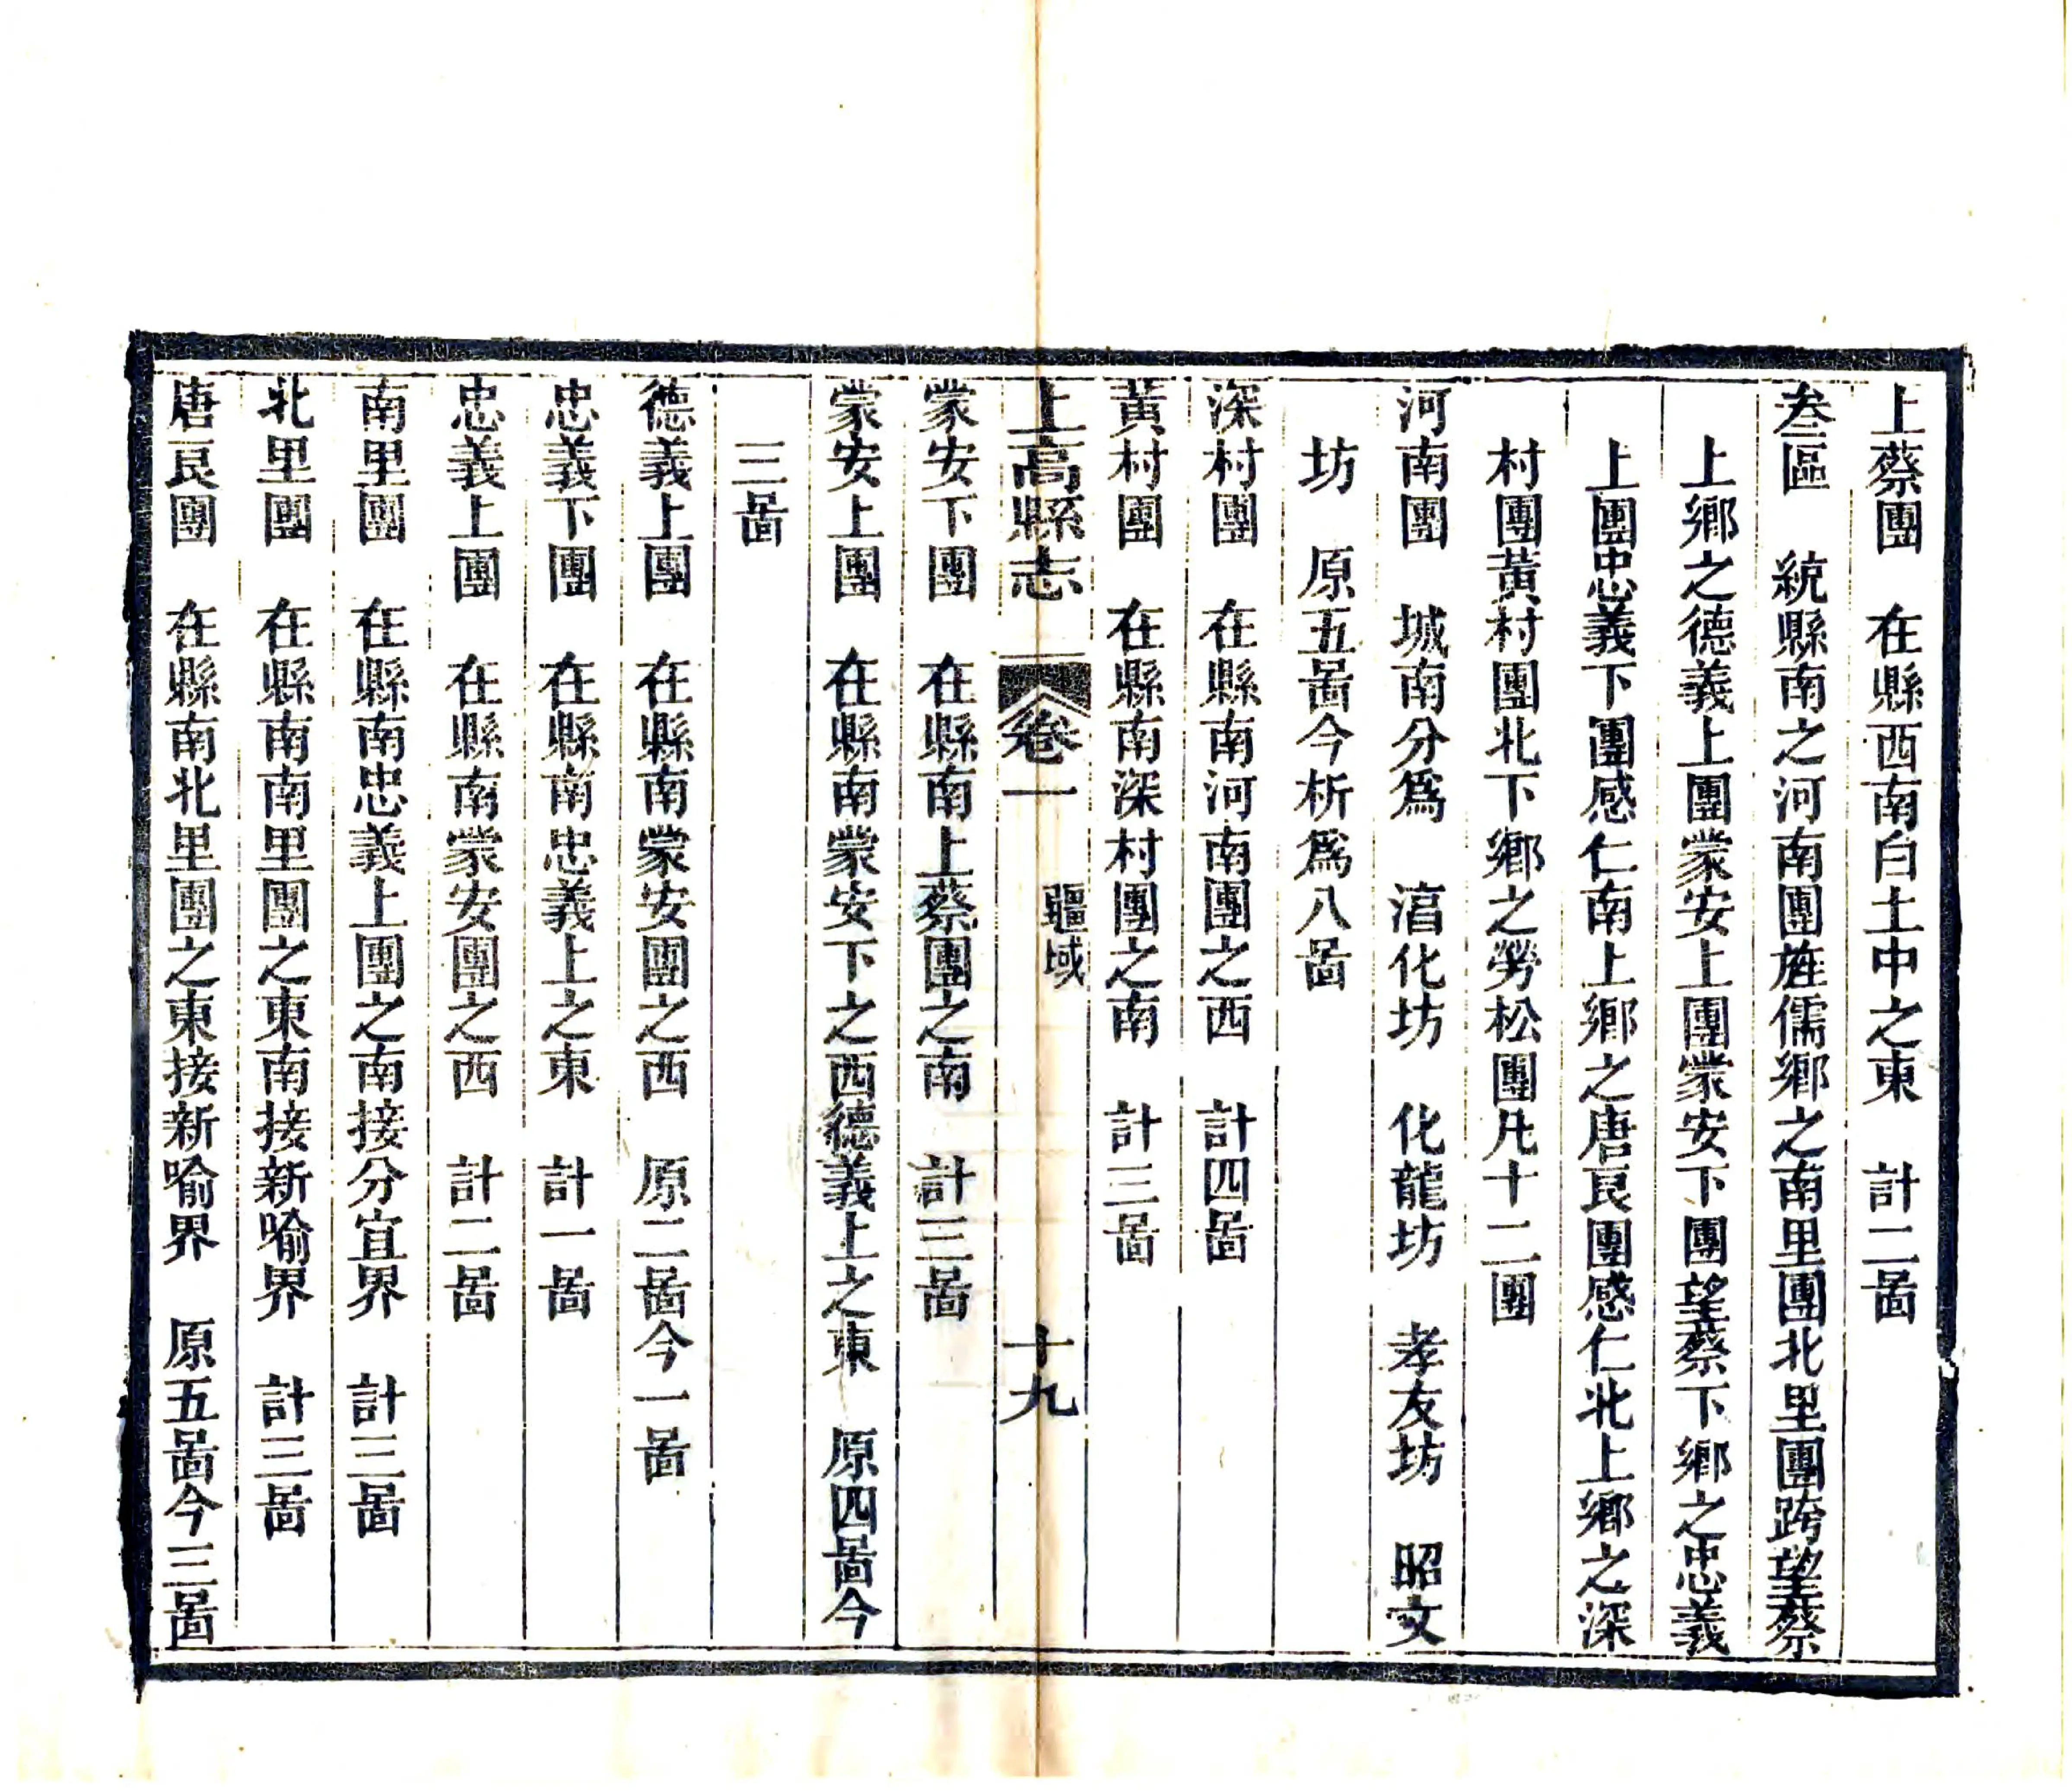 上蔡團　在縣西南白土中之東　計二啚
叁區　統縣南之河南團旌儒鄉之南里團北里團跨望蔡
上鄉之德義上團蒙安上團蒙安下團望蔡下鄉之忠義
上團忠義下團感仁南上鄉之唐良團感仁北上鄉之深
村團黃村團北下鄉之勞松團凡十二團
河南團　城南分爲　湻化坊　化龍坊　孝友坊　昭文
坊　原五啚今析爲八啚
深村團　在縣南河南團之西　計四啚
黃村團　在縣南深村團之南　計三啚
上高縣志　卷一　疆域　十九
蒙安下團　在縣南上蔡團之南　計三啚
蒙安上團　在縣南蒙安下之西德義上之東　原四啚今
三啚
德義上團　在縣南蒙安團之西　原二啚今一啚
忠義下團　在縣南忠義上之東　計一啚
忠義上團　在縣南蒙安團之西　計二啚
南里團　在縣南忠義上團之南接分宜界　計三啚
北里團　在縣南南里團之東南接新喻界　計三啚
唐良團　在縣南北里團之東接新喻界　原五啚今三啚